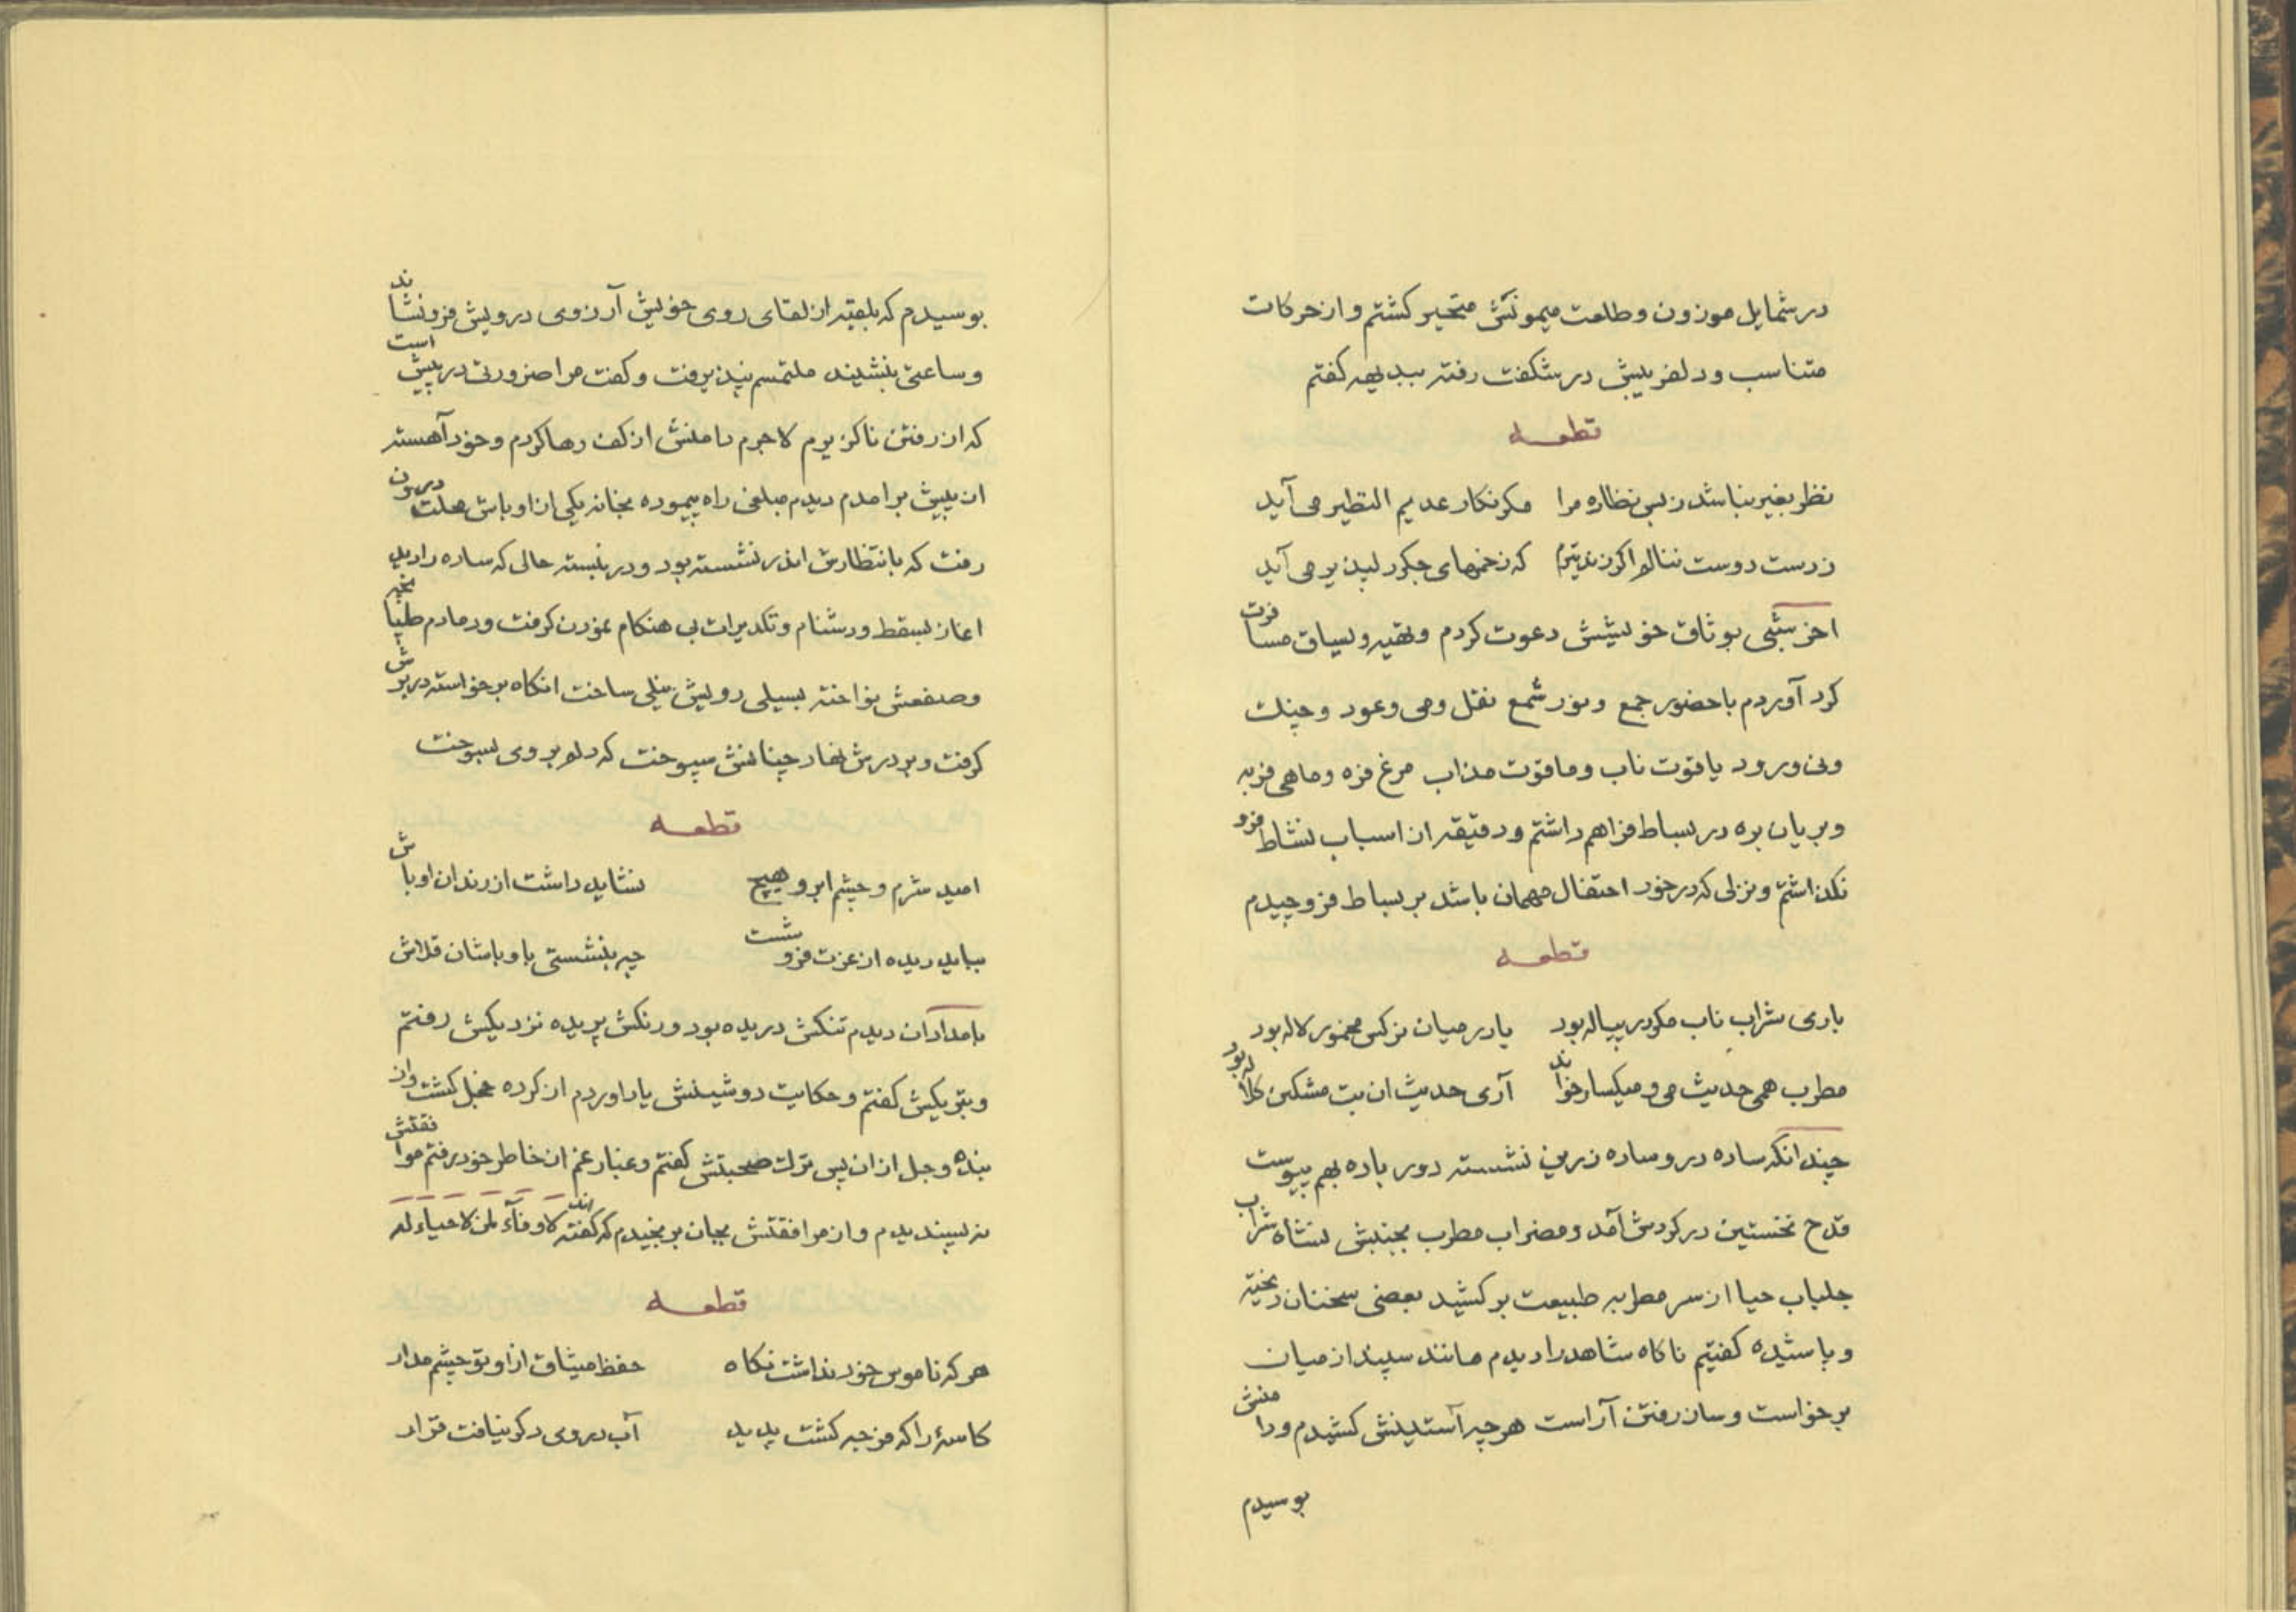 در شمایل موزون و طلعت میمونش متحیر کشتم و از حرکات
متناسب و دلفریبش در شکفت رفته ببدیهه کفتم
قطعه
نظر بغیر نباشد ز بس نظاره مرا مکر نکار عدیم النظیر می آید
ز دست دوست ننالم اکر زند تیرم که زخمهای جکر دلپذیر می آید
اخر شبی بوثاق خویشش دعوت کردم و بقیه و لسیاق مسافرت
کرد آوردم با حضور جمع و نور شمع نقل و می و عود و چنك
و نی و رود یاقوت ناب و ماقوت مذاب مرغ فزه و ماهی فربه
و بریان بره در بساط فراهم داشتم و دقیقه از اسباب نشاط فرو
نکذاشتم و نزلی که در خور احتفال مهمان باشد بر بساط فرو چیدم
قطعه
باری شراب ناب مکو در پیاله بود یا در میان نرکس مخمور لاله بود
مطرب همی حدیث می و میکسار خواند آری حدیث ان بت مشکین کلاله بود
چندانکه ساده در وساده زرین نشسته دور باده بهم پیوست
قدح نخستین در کردش آمد و مضراب مطرب بجنبش نشاه شراب
جلباب حیا از سر مطربه طبیعت بر کشید بعضی سخنان ریخته
و پاشیده کفتیم ناکاه شاهد را دیدم مانند سپند از میان
برخواست و ساز رفتن آراست هر چه آستینش کشیدم و دامنش
بوسیدم
بوسیدم که بلقیه از لقای روی خویش آرزوی درویش فرو نشاند
و ساعتی بنشیند ملتمسم نپذیرفت و کفت مرا ضرورتی در پیش است
که از رفتن ناکزیرم لاجرم دامنش از کف رها کردم و خود آهسته
از پیش برامدم دیدم مبلغی راه پیموده بخانه یکی از اوباش هلت درون
رفت که بانتظارش اندر نشسته بود و در بسته حالی که ساده را دید
اغاز بسقط و دشنام و تکدیرات بی هنکام نمودن کرفت و دمادم طپانچه
و صفعش نواخته بسیلی رویش نیلی ساخت انکاه برخواسته در برش
کرفت و بر درش نهاد چنانش سپوخت که دلم بر وی بسوخت
قطعه
امید شرم و چشم ابرو هیچ نشاید داشت از رندان اوباش
بباید دیده از عزت فرو شست چه بنشستی با وباشان قلاش
بامدادان دیدم تنکش دریده بود و رنکش پریده نزدیکش رفتم
و بتریکش کفتم و حکایت دوشینش یاد اوردم از کرده خجل کشت و از
بنده وجل از ان پس ترك صحبتش کفتم و غبار غم از خاطر خود رفتم موافقتش
نه پسندیدم و از مرافقتش بجان برنجیدم که کفته اند لا وفآء لمن لا حیاء له
قطعه
هر که ناموس خود نداشت نکاه حفظ میثاق از او تو چشم مدار
کاسهٔ را که فرجه کشت پدید آب در وی دکر نیافت قرار